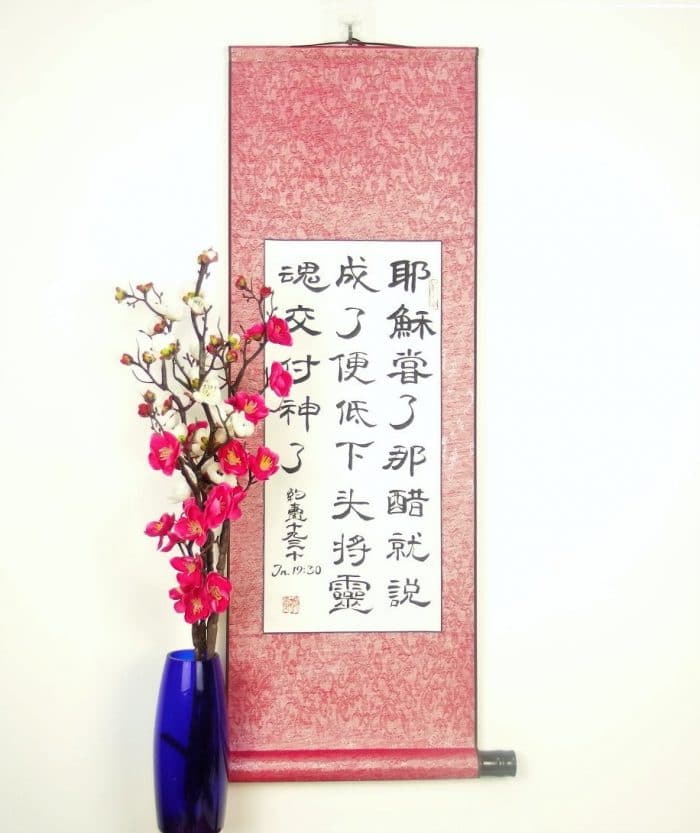 耶穌嘗了那醋就説
成了便低下头将靈
魂交付神了
約 十九三十
Jn.19:30